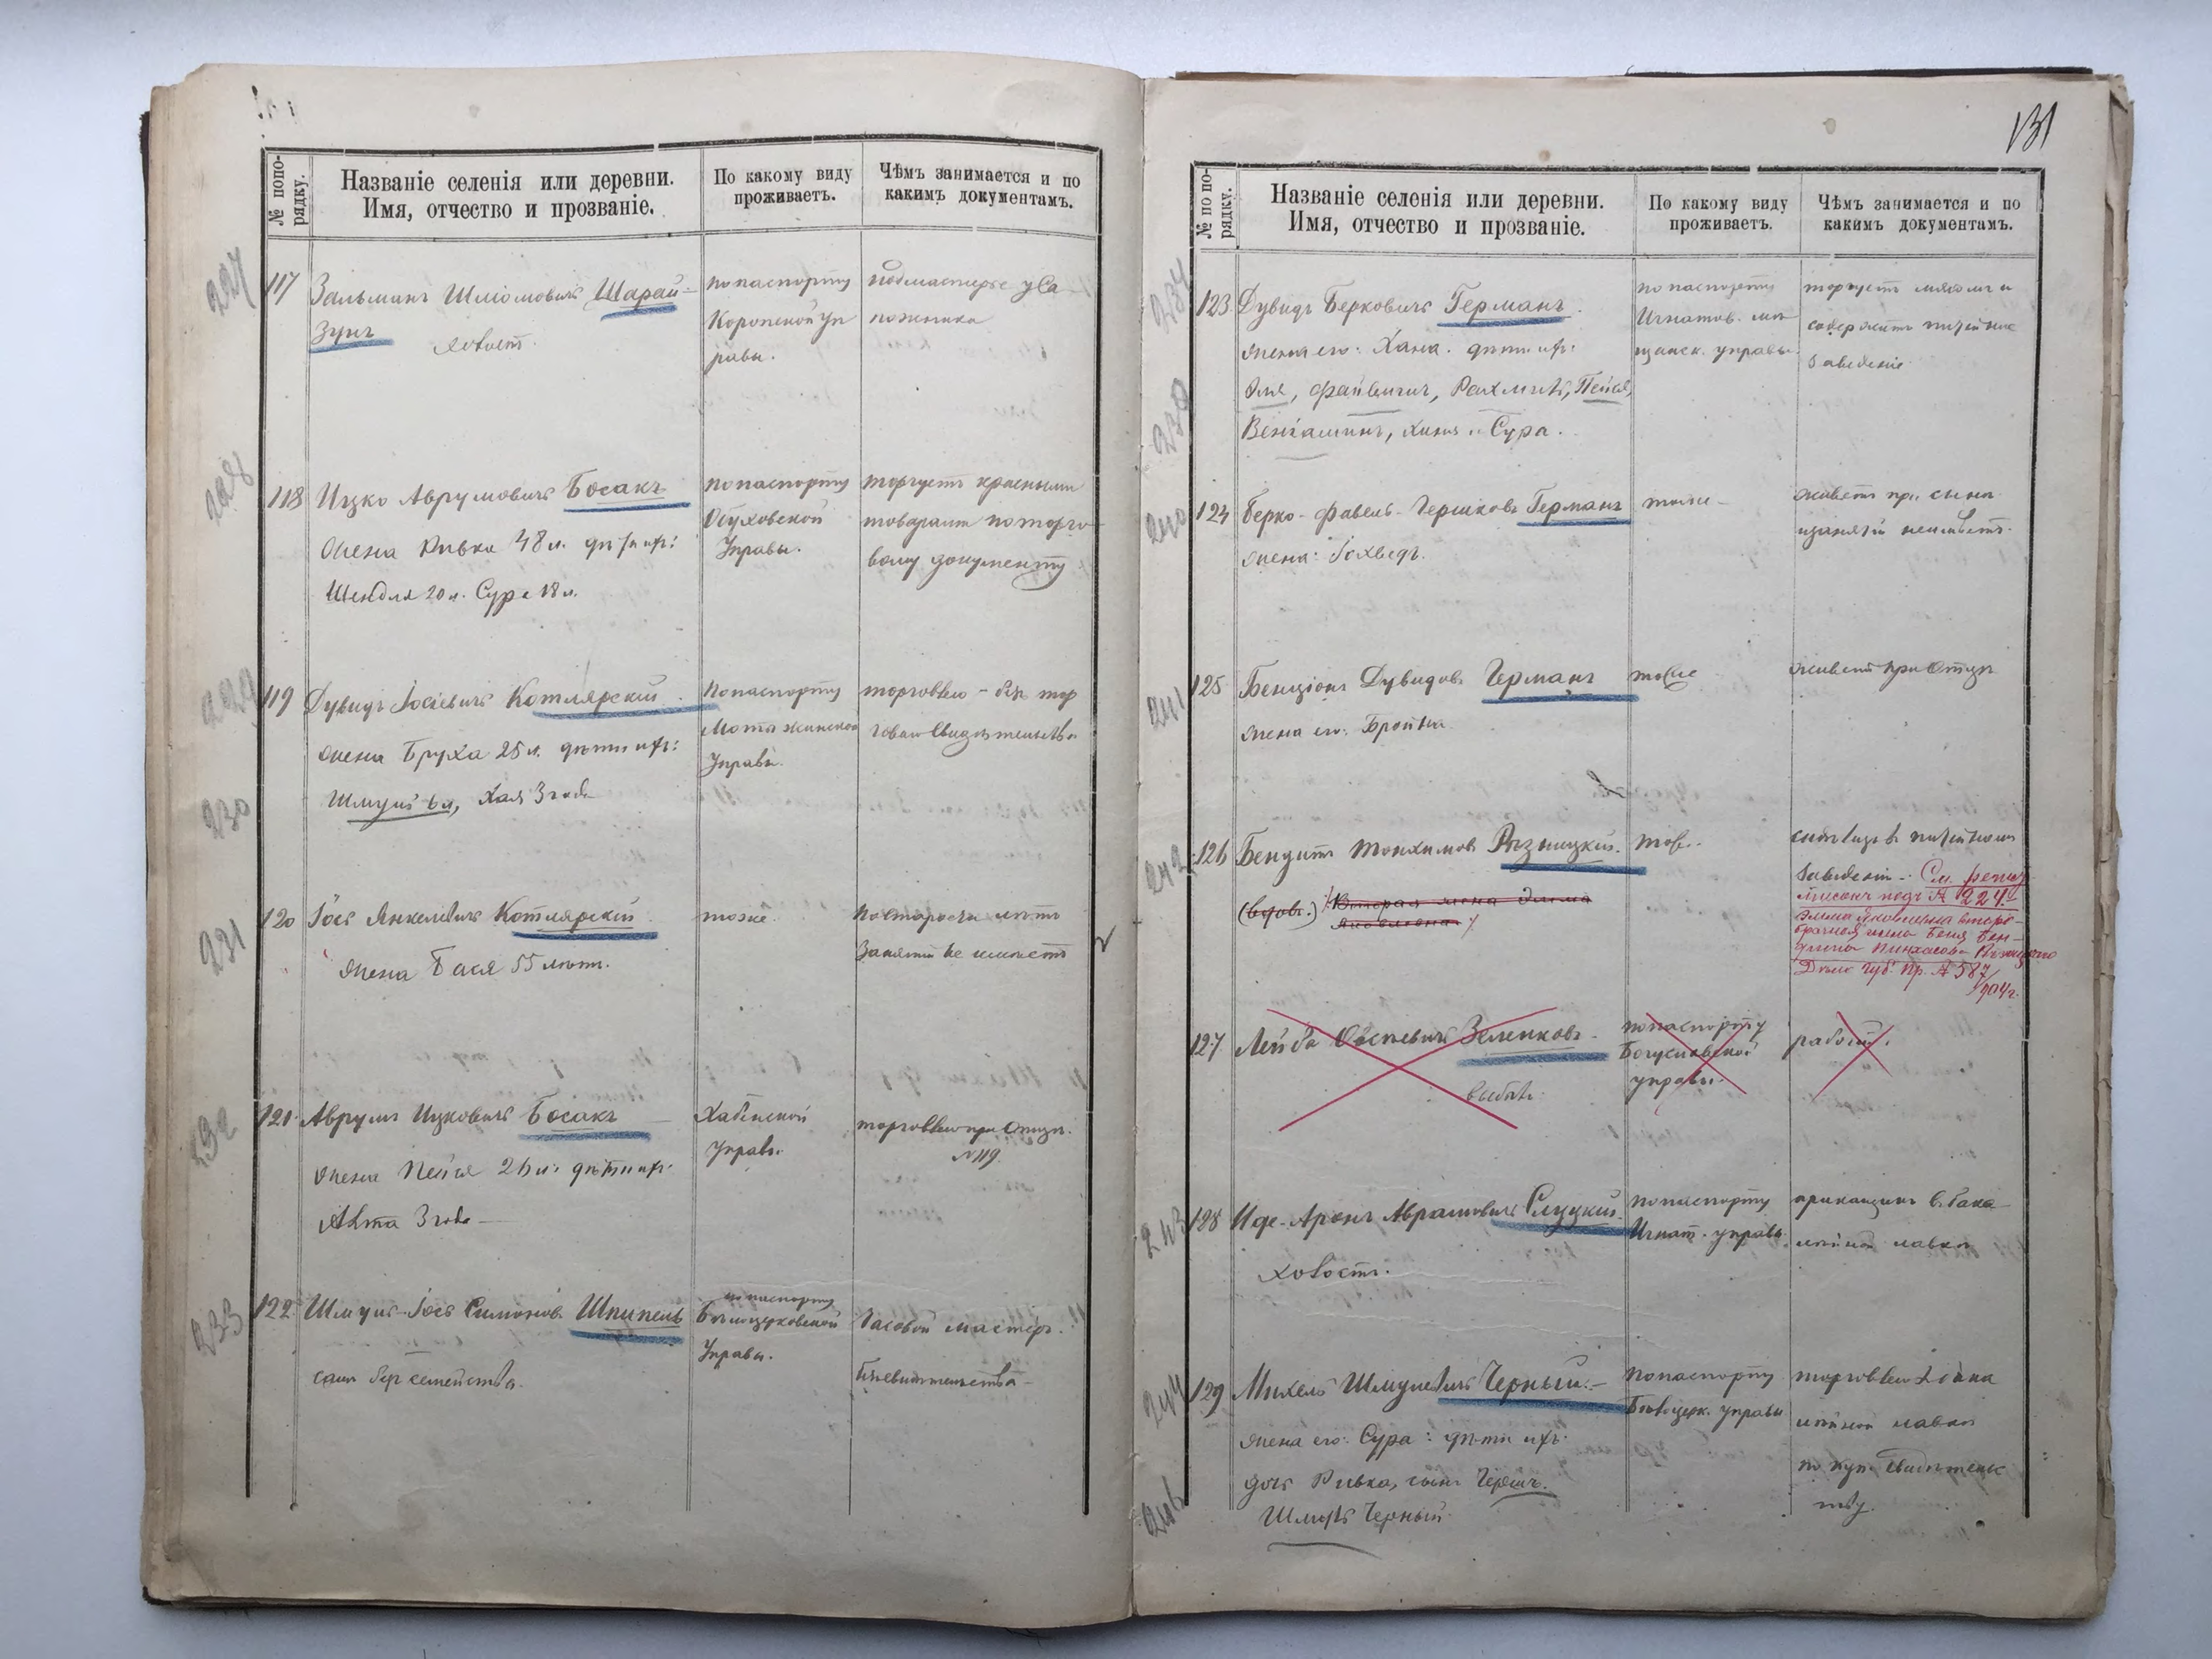 № попо-
рядку.
Названіе селенія или деревни.
Имя, отчество и прозваніе.
По какому виду
проживаетъ.
Чѣмъ занимается и по
какимъ документамъ.
227
117
Зальманъ Шліомовичъ Шарай-
зунъ
холост.
по паспорту
Коропской Уп
равы.
подмастерье у Са-
пожника
228
118
Ицко Аврумовичъ Босакъ
жена Ривка 48 л. дѣти их:
Шендля 20 л. Сура 18 л.
по паспорту
Обуховской
Управы.
торгуетъ красными
товарами по торго-
вому документу
229
119
Дувидъ Іосіевичъ Котлярскій
жена Бруха 25 л. дѣти ихъ:
Шмуль 6 л, Хая 3 года
230
По паспорту
Мотыжинской
Управы.
торговлею - без тор
говаго Свидѣтельства
231
120
Іось Янкелевичъ Котлярскій
жена Бася 55 лѣтъ.
тоже
по старости лѣтъ
Занятій не имѣетъ
232
121
Аврумъ Ицковичъ Босакъ
жена Пейся 26 л: дѣти их:
3 года
Хабенской
Управы
торговлею при Отцѣ.
№ 119
233
122
Шмуль-Іось Симонов. Шпипель
сам без семейства.
по паспорту
Бѣлоцерковской
Управы.
Часовой мастеръ.
131
№ по по-
рядку.
Названіе селенія или деревни.
Имя, отчество и прозваніе.
По какому виду
проживаетъ.
Чѣмъ занимается и по
какимъ документамъ.
123
Дувидъ Берковичъ Германъ
жена его: Хана. дѣти их:
Эля, Файвишъ, Рахмиль, Пейся,
Веніаминъ, Хиня и Сура.
по паспорту
Игнатов. мѣ
щанск. управы
торгуетъ мясомъ и
содержитъ питейное
Заведеніе
240
124
Берко-Фавель-Гершковъ Германъ
жена: Іохведъ.
тоже
живетъ при сынѣ
и занятій неимѣетъ.
241
125
Бенціонъ Дувидовъ Германъ
жена его: Бройна
тоже
живет при Отцѣ
242
126
Бендитъ Рязницкій.
(вдовъ.) Вторая жена Элима
Яковлевна
тоже
сидѣлецъ въ питейномъ
Заведеніи. См.
под № 224.
Дѣло Губ. Пр. № 587/904 г.
127
Лейба Овсѣевичъ Зеленковъ
выбылъ
по паспорту
Богуславской
управы
работн.
243
128
Иде-Аронъ Аврамовичъ Слуцкій
холостъ.
по паспорту
Игнат. управы
прикащикъ в бака
лейной лавкѣ
244
129
Михель Шмулевичъ Черный
жена его: Сура: дѣти ихъ:
дочь Ривка, сынъ Гершъ.
246
Шмуль Черный
по паспорту
Бѣлоцерк. управы
торговлею
лейной лавкѣ
по куп. Свидѣтельс
тву.